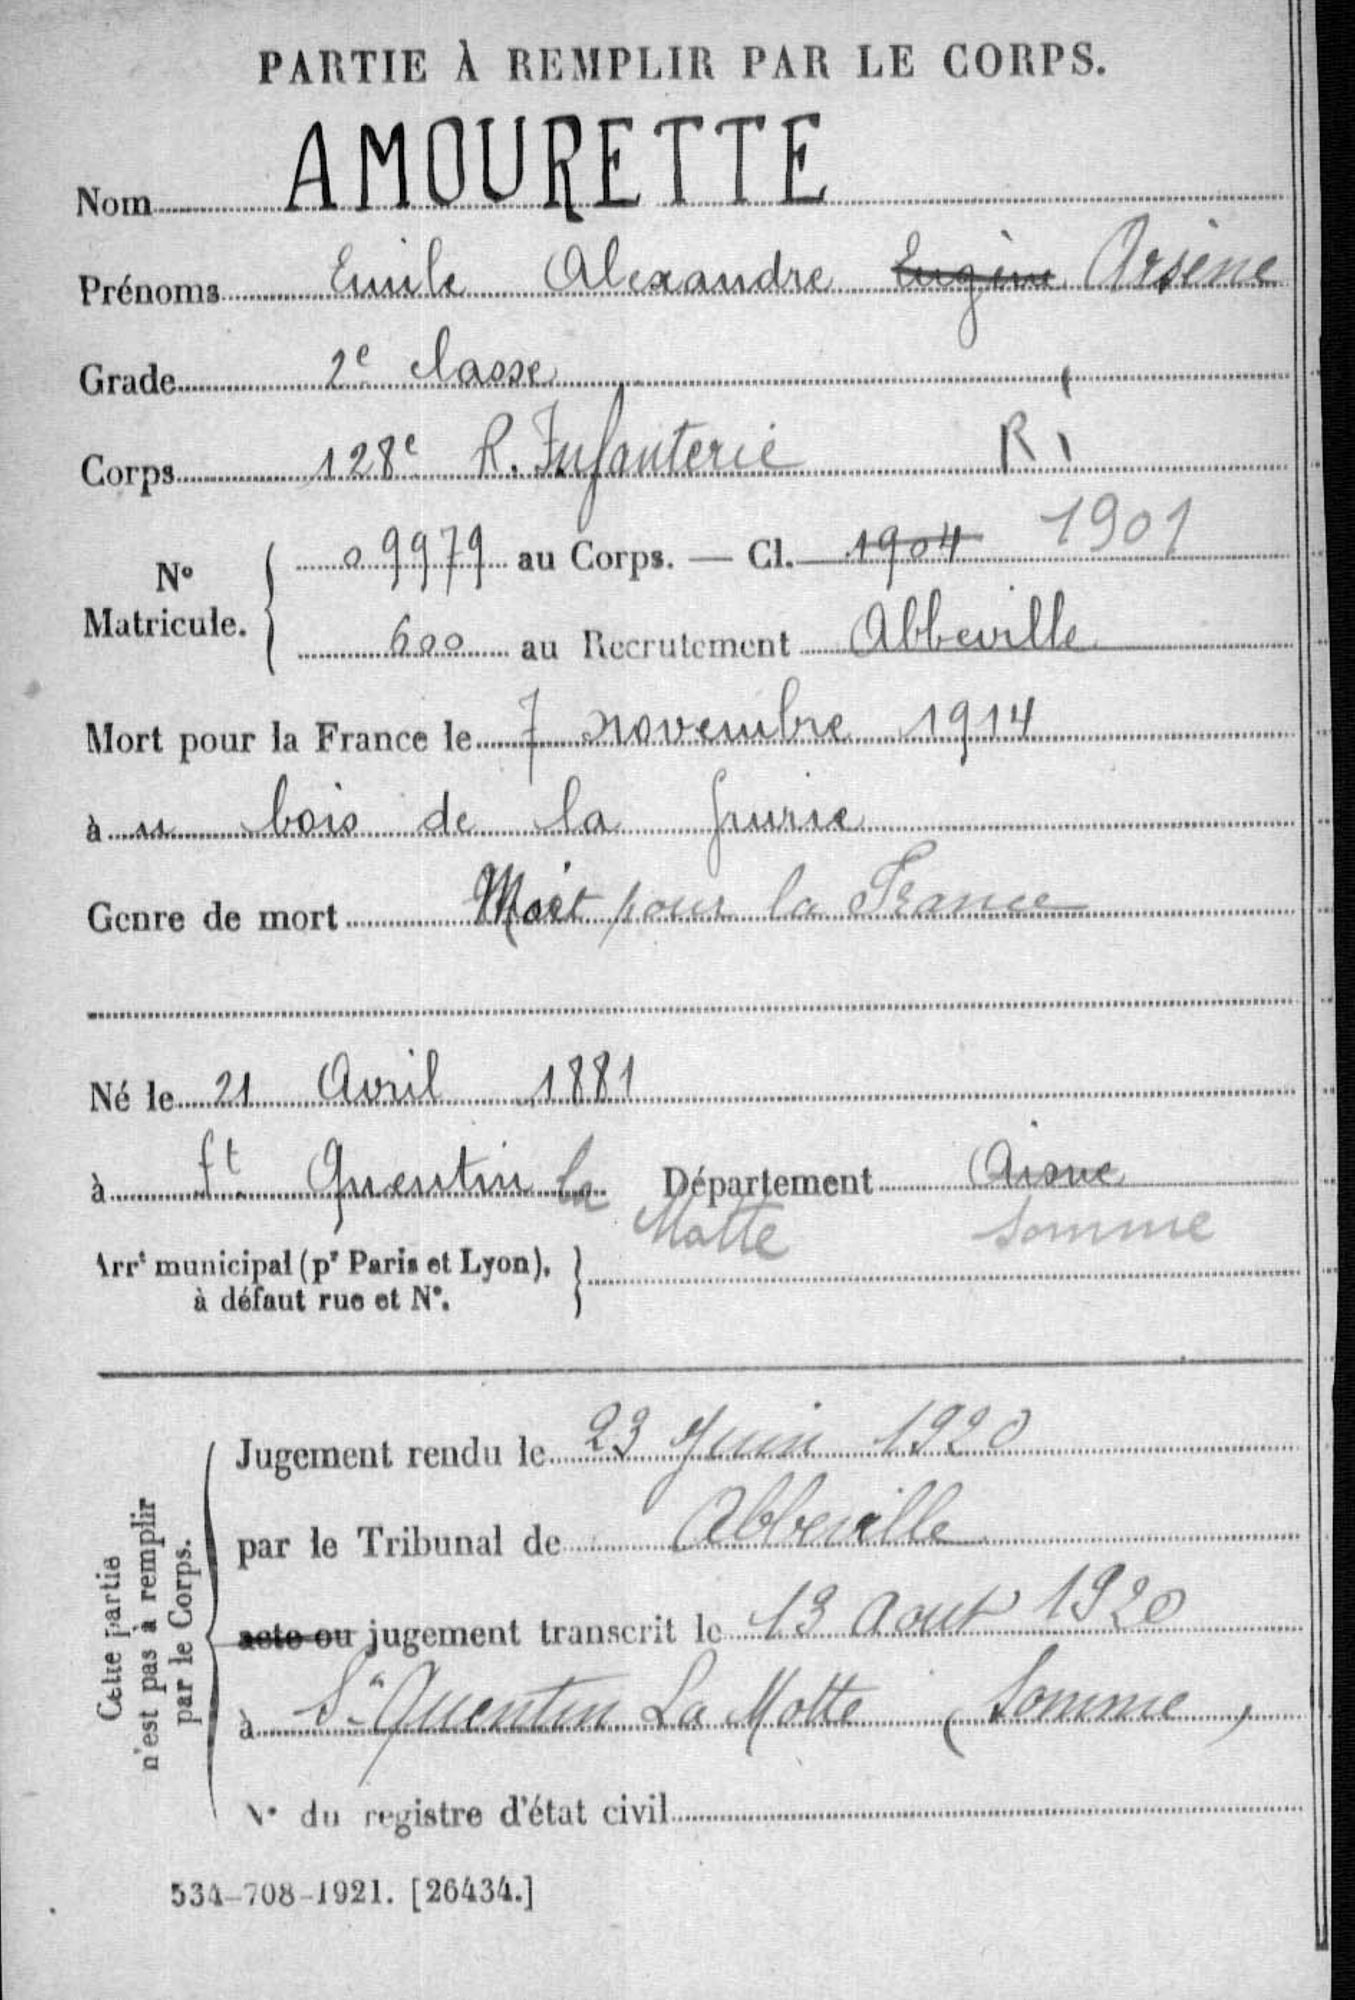 PARTIE À REMPLIR PAR LE CORPS.
Nom AMOURETTE
Prénoms Emile Alexandre Eugène Arsène
Grade 2e classe
Corps 128e R. Infanterie R i
No Matricule. 09979 au Corps. — Cl. 1904 1901
600 au Recrutement Abbeville
Mort pour la France le 7 novembre 1914
à u bois de la grurie
Genre de mort Mort pour la France
Né le 21 Avril 1881
à St Quentin la Motte Département Aisne Somme
Arrt municipal (pr Paris et Lyon),
à défaut rue et No.
Cette partie
n'est pas à remplir
par le Corps.
Jugement rendu le 23 Juin 1920
par le Tribunal de Abbeville
acte ou jugement transcrit le 13 Aout 1920
à St Quentin La Motte (Somme)
No du registre d'état civil
534-708-1921. [26434.]